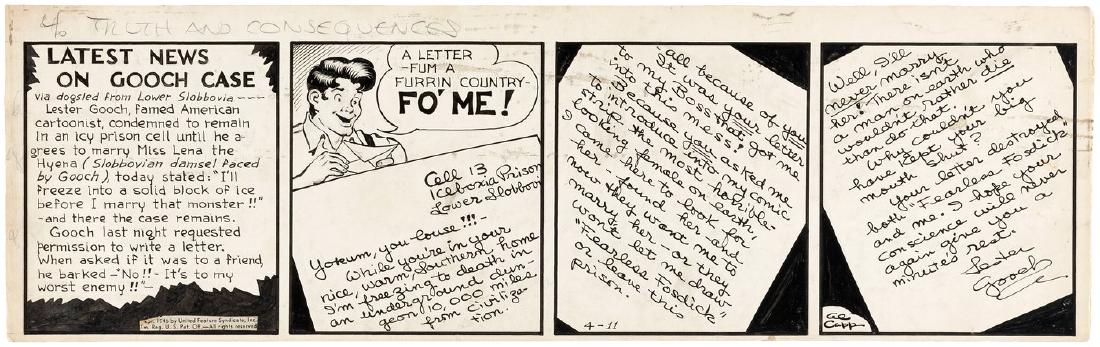 4/6 TRUTH AND CONSEQUENCES
LATEST NEWS
ON GOOCH CASE
via dogsled from Lower Slobbovia----
Lester Gooch, famed American
cartoonist, condemned to remain
in an icy prison cell until he a-
grees to marry Miss Lena the
Hyena (Slobbovian damsel faced
by Gooch), today stated: "I'll
freeze into a solid block of ice
before I marry that monster!!"
-and there the case remains.
Gooch last night requested
permission to write a letter.
When asked if it was to a friend,
he barked-"No!!- It's to my
worst enemy!!"-
1946 by United Feature Syndicate, Inc.
Tm. Reg. U. S. Pat. Off.—All rights reserved
A LETTER
-FUM A
FURRIN COUNTRY-
FO' ME!
Cell 13
Iceboxia Prison
Lower Slobbovia
Yokum, you louse!!!-
While you're in your
nice, warm, Southern home
I'm freezing to death in
an underground dun-
geon 10,000 miles
from civiliza-
tion.
all because of you
It was your letter
to my Boss that got me
into this mess!
Because you asked me
to introduce into my comic
strip the most horrible-
looking female on Earth
I came here to look for
her - found her and
now they want me to
marry her - or they
won't let me draw
"Fearless Fosdick"
or leave this
prison.
4-11
Well, I'll
never marry
her! There isn't
a man on earth who
wouldn't rather die
than do that!
Why couldn't you
have kept your big
mouth shut?
Your letter destroyed
both "Fearless Fosdick"
and me. I hope your
conscience will never
again give you a
minute's rest.
Lester
Gooch
Al
Capp